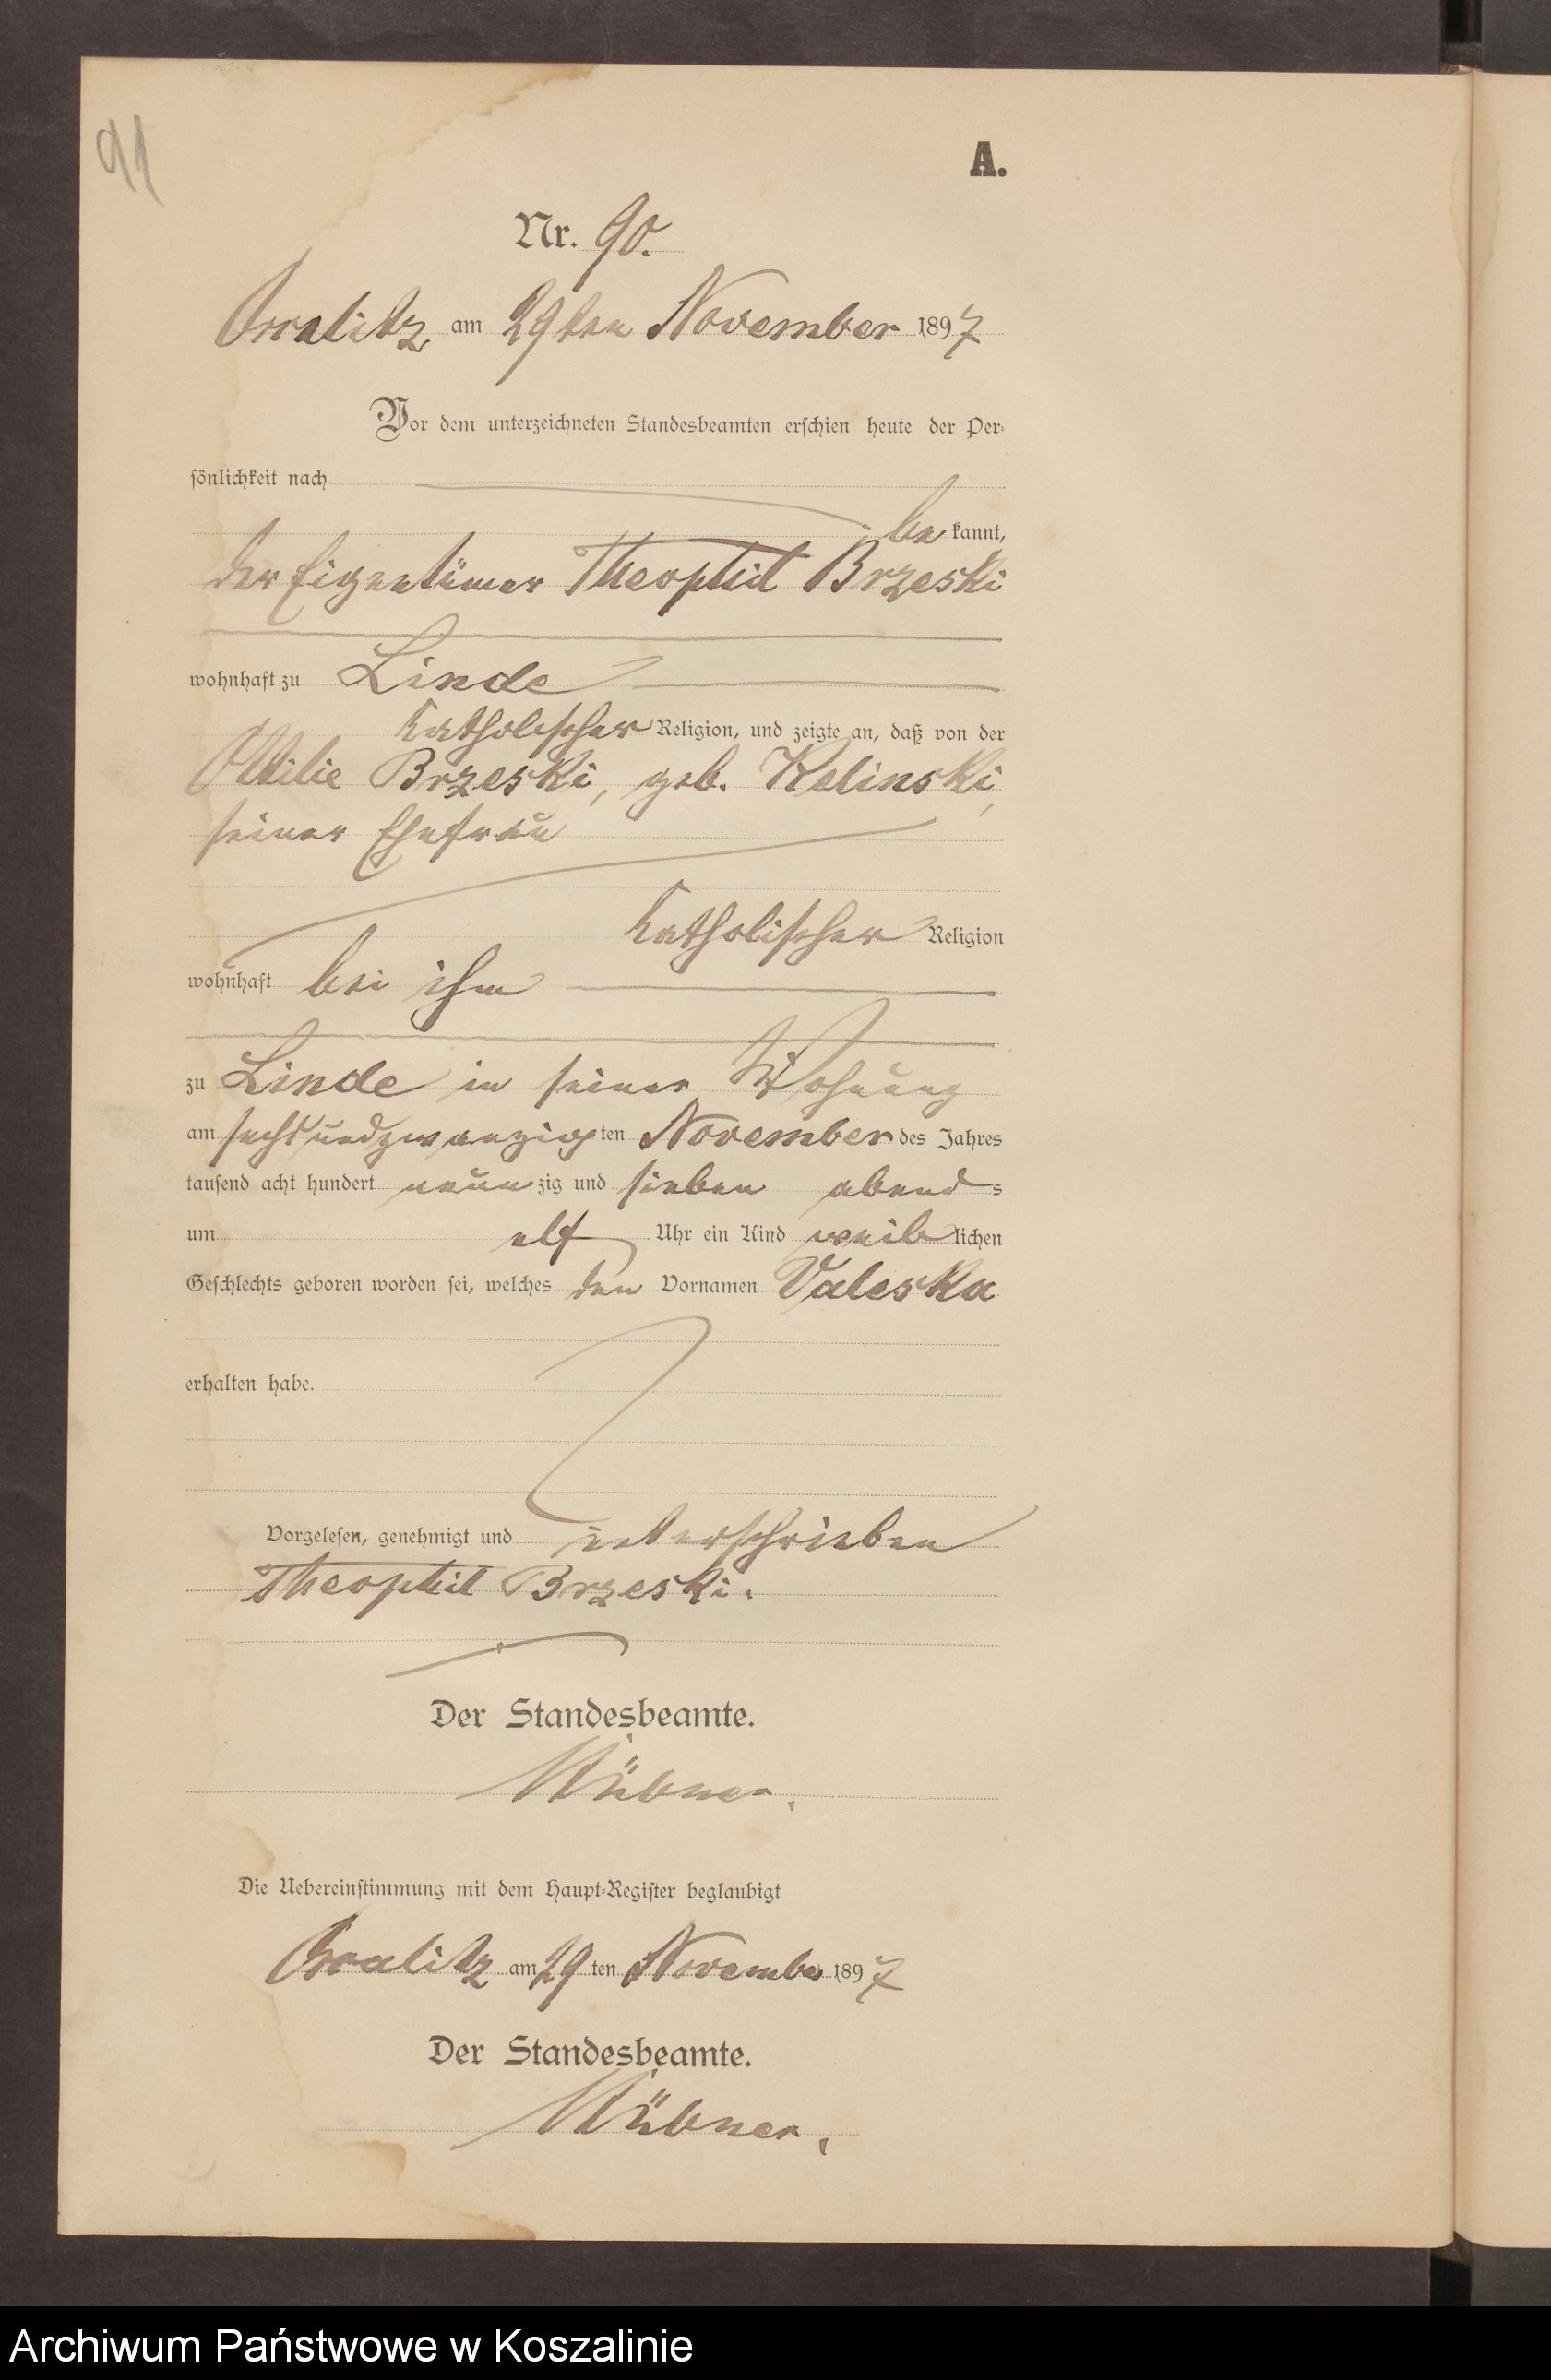 91
A.
Nr. 90.
am 29ten November 1897
Vor dem unterzeichneten Standesbeamten erschien heute der Per-
sönlichkeit nach
be kannt,
der Eigentümer Theophil Brzeski
wohnhaft zu Linde
katholischer Religion, und zeigte an, daß von der
Ottilie Brzeski, geb. Kelinski,
seiner Ehefrau
katholischer Religion
wohnhaft bei ihm
zu Linde in seiner Wohnung
am sechsundzwanzigsten November des Jahres
tausend acht hundert neunzig und sieben abends
um elf Uhr ein Kind weiblichen
Geschlechts geboren worden sei, welches den Vornamen Valeska
erhalten habe.
Vorgelesen, genehmigt und unterschrieben
Theophil Brzeski.
Der Standesbeamte.
Die Uebereinstimmung mit dem Haupt-Register beglaubigt
am 29ten November 1897
Der Standesbeamte.
Archiwum Państwowe w Koszalinie